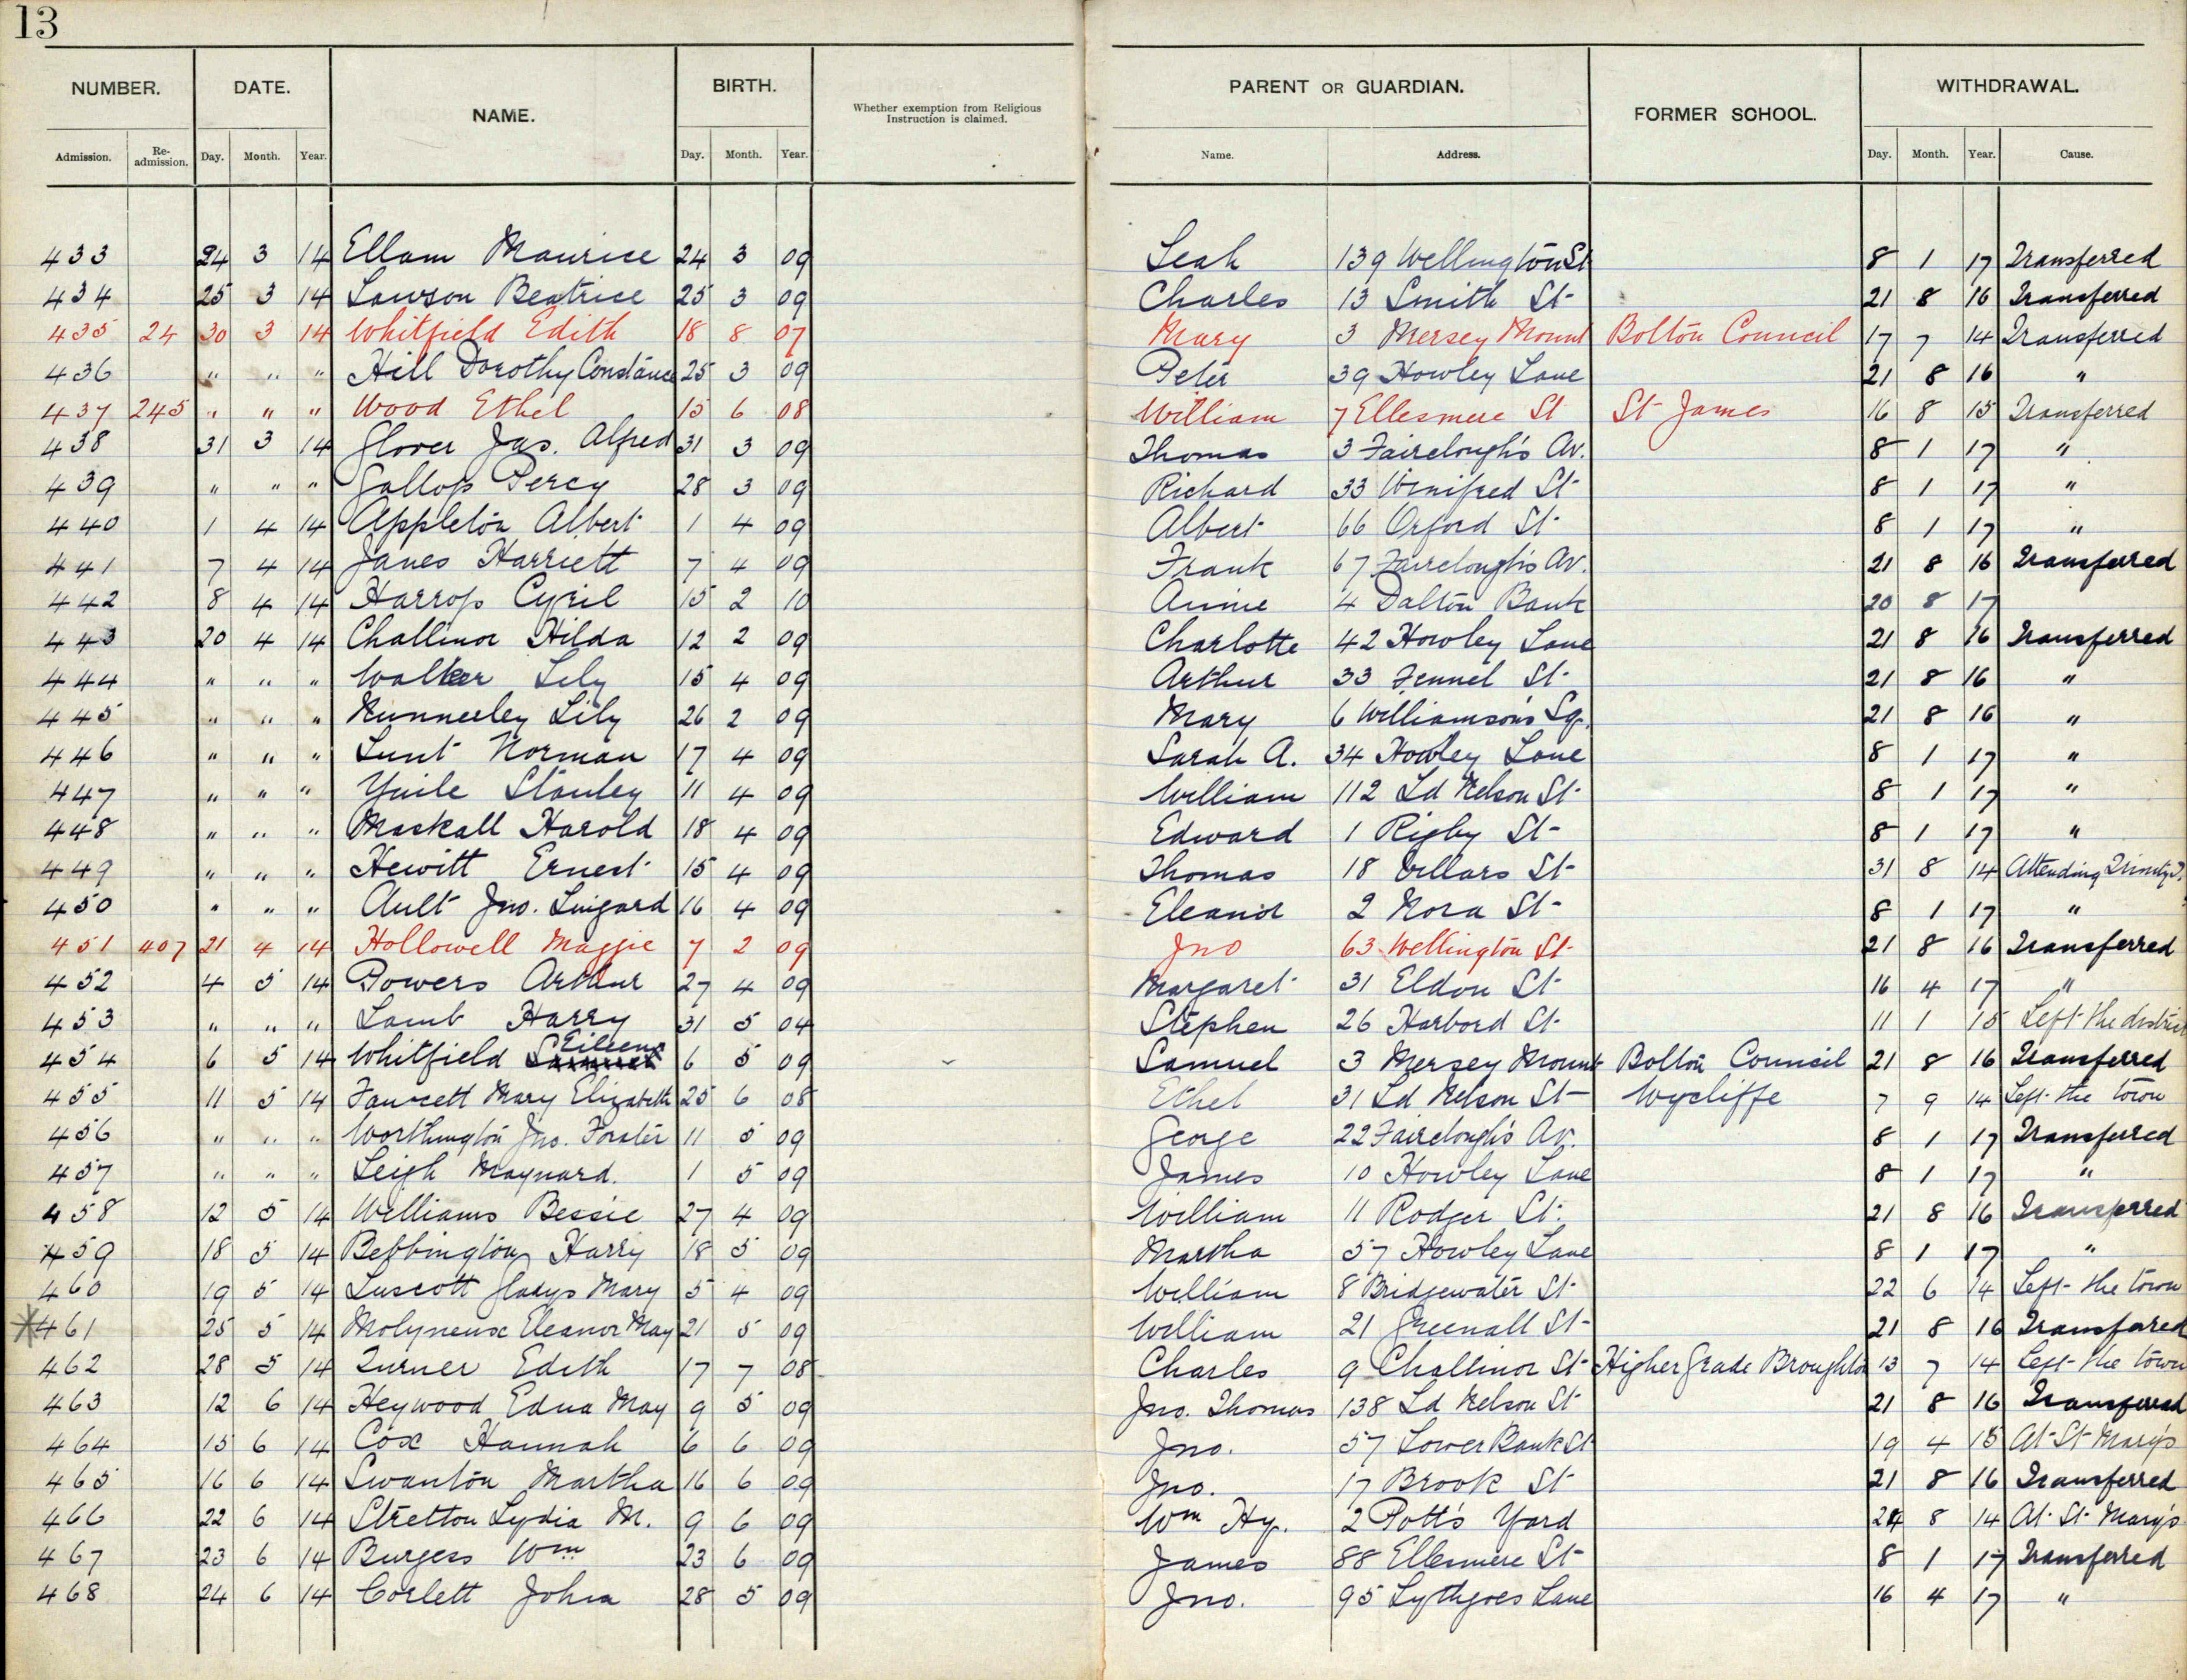 13
NUMBER. DATE. NAME. BIRTH. Whether exemption from Religious Instruction is claimed. PARENT OR GUARDIAN. FORMER SCHOOL. WITHDRAWAL.
Admission. Re-admission. Day. Month. Year. Day. Month. Year. Name. Address. Day. Month. Year. Cause.
433 24 3 14 Ellam Maurice 24 3 09 Leah 139 Wellington St 8 1 17 Transferred
434 25 3 14 Lawson Beatrice 25 3 09 Charles 13 Smith St 21 8 16 Transferred
435 24 30 3 14 Whitfield Edith 18 8 07 Mary 3 Mersey Mount Bolton Council 17 7 14 Transferred
436 " " " Hill Dorothy Constance 25 3 09 Peter 39 Howley Lane 21 8 16 "
437 245 " " " Wood Ethel 15 6 08 William 7 Ellesmere St St James 16 8 15 Transferred
438 31 3 14 Glover Jas. Alfred 31 3 09 Thomas 3 Fairclough's Av. 8 1 17 "
439 " " " Gallop Percy 28 3 09 Richard 33 Winifred St 8 1 17 "
440 1 4 14 Appleton Albert 1 4 09 Albert 66 Orford St 8 1 17 "
441 7 4 14 Janes Harriett 7 4 09 Frank 67 Fairclough's Av. 21 8 16 Transferred
442 8 4 14 Harrop Cyril 15 2 10 Annie 4 Dalton Bank 20 8 17
443 20 4 14 Challinor Hilda 12 2 09 Charlotte 42 Howley Lane 21 8 16 Transferred
444 " " " Walker Lily 15 4 09 Arthur 33 Fennel St 21 8 16 "
445 " " " Nunnerley Lily 26 2 09 Mary 6 Williamson's Sq. 21 8 16 "
446 " " " Lunt Norman 17 4 09 Sarah A. 34 Howley Lane 8 1 17 "
447 " " " Yuile Stanley 11 4 09 William 112 Ld Nelson St 8 1 17 "
448 " " " Maskall Harold 18 4 09 Edward 1 Rigby St 8 1 17 "
449 " " " Hewitt Ernest 15 4 09 Thomas 18 Villars St 31 8 14 Attending Trinity
450 " " " Ault Jno. Lingard 16 4 09 Eleanor 2 Nora St 8 1 17 "
451 407 21 4 14 Hollowell Maggie 7 2 09 Jno 63 Wellington St 21 8 16 Transferred
452 4 5 14 Powers Arthur 27 4 09 Margaret 31 Eldon St 16 4 17 "
453 " " " Lamb Harry 31 5 04 Stephen 26 Harbord St 11 1 15 Left the district
454 6 5 14 Whitfield Eileen 6 5 09 Samuel 3 Mersey Mount Bolton Council 21 8 16 Transferred
455 11 5 14 Fawcett Mary Elizabeth 25 6 08 Ethel 31 Ld Nelson St Wycliffe 7 9 14 Left the town
456 " " " Worthington Jno. Forster 11 5 09 George 22 Fairclough's Av. 8 1 17 Transferred
457 " " " Leigh Maynard. 1 5 09 James 10 Howley Lane 8 1 17 "
458 12 5 14 Williams Bessie 27 4 09 William 11 Rodger St. 21 8 16 Transferred
459 18 5 14 Bebbington Harry 18 5 09 Martha 57 Howley Lane 8 1 17 "
460 19 5 14 Luscott Gladys Mary 5 4 09 William 8 Bridgewater St 22 6 14 Left the town
*461 25 5 14 Molyneux Eleanor May 21 5 09 William 21 Greenall St 21 8 16 Transfered
462 28 5 14 Turner Edith 17 7 08 Charles 9 Challinor St Higher Grade Broughton 13 7 14 Left the town
463 12 6 14 Heywood Edna May 9 5 09 Jno. Thomas 138 Ld Nelson St 21 8 16 Transferred
464 15 6 14 Cox Hannah 6 6 09 Jno. 57 Lower Bank St 19 4 15 At St Mary's
465 16 6 14 Swanton Martha 16 6 09 Jno. 17 Brook St 21 8 16 Transferred
466 22 6 14 Stretton Lydia M. 9 6 09 Wm Hy. 2 Pott's Yard 24 8 14 At St Mary's
467 23 6 14 Burgess Wm 23 6 09 James 88 Ellesmere St 8 1 17 Transferred
468 24 6 14 Corlett John 28 5 09 Jno. 95 Lythgoes Lane 16 4 17 "